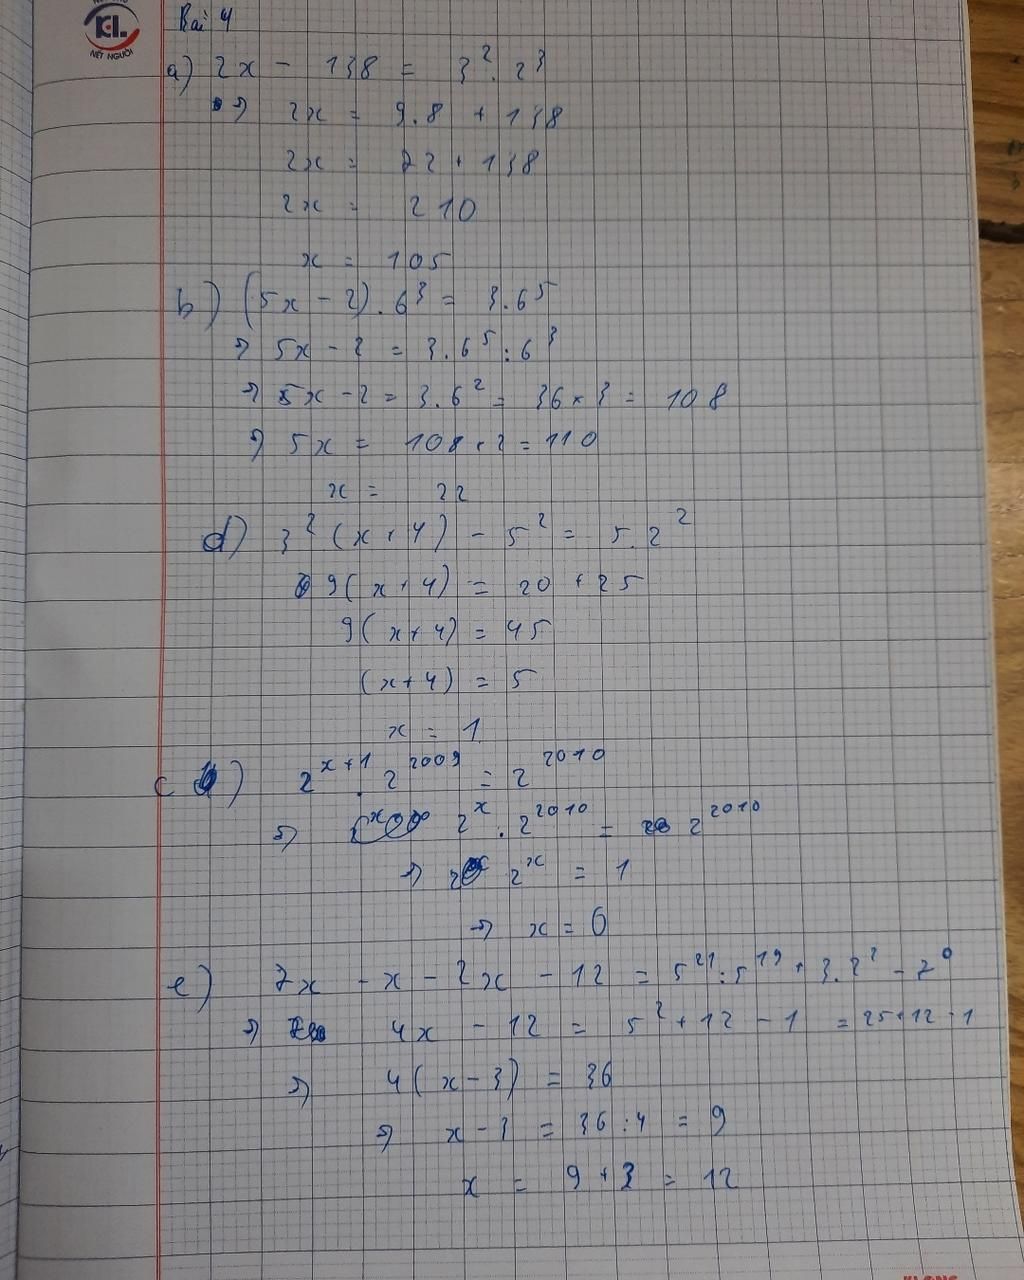 KL
NÉT NGƯỜI
Bài 4
a) 2x - 138 = 3². 2³
=> 2x = 9.8 + 138
2x = 72 + 138
2x = 210
x = 105
b) (5x - 2). 6³ = 3.6⁵
=> 5x - 2 = 3.6⁵ : 6³
=> 5x - 2 = 3.6² = 36 × 3 = 108
=> 5x = 108 + 2 = 110
x = 22
d) 3² (x + 4) - 5² = 5.2²
9(x + 4) = 20 + 25
9(x + 4) = 45
(x + 4) = 5
x = 1
c) 2ˣ⁺¹ . 2²⁰⁰⁹ = 2²⁰¹⁰
=> 2ˣ . 2²⁰¹⁰ = 2²⁰¹⁰
=> 2ˣ = 1
=> x = 0
e) 7x - x - 2x - 12 = 5²¹ : 5¹⁹ + 3.2² - 7⁰
=> 4x - 12 = 5² + 12 - 1 = 25 + 12 - 1
=> 4(x - 3) = 36
=> x - 3 = 36 : 4 = 9
x = 9 + 3 = 12